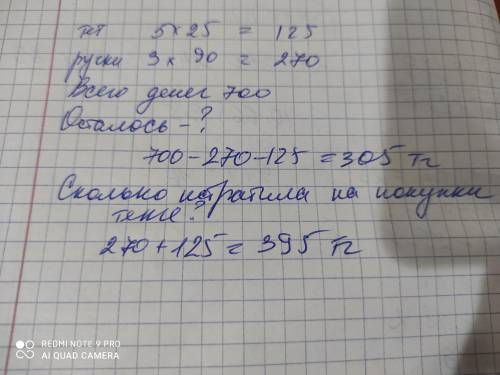 тет 5 × 25 = 125
ручки 3 × 90 = 270
Всего денег 700
Осталось - ?
700 - 270 - 125 = 305 тг
Сколько потратила на покупки
тенге?
270 + 125 = 395 тг
REDMI NOTE 9 PRO
AI QUAD CAMERA